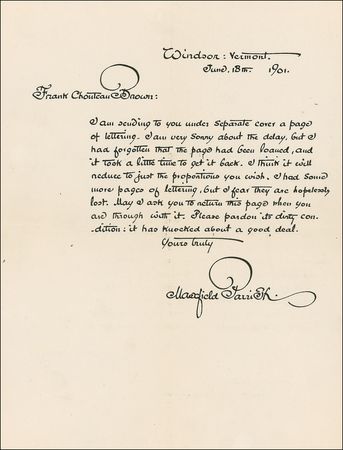 Windsor : Vermont.
June, 18th. 1901.
Frank Chouteau Brown :
I am sending to you under separate cover a page
of lettering. I am very sorry about the delay, but I
had forgotten that the page had been loaned, and
it took a little time to get it back. I think it will
reduce to just the proportions you wish. I had some
more pages of lettering, but I fear they are hopelessly
lost. May I ask you to return this page when you
are through with it. Please pardon its dirty con-
dition : it has knocked about a good deal.
Yours truly
Maxfield Parrish